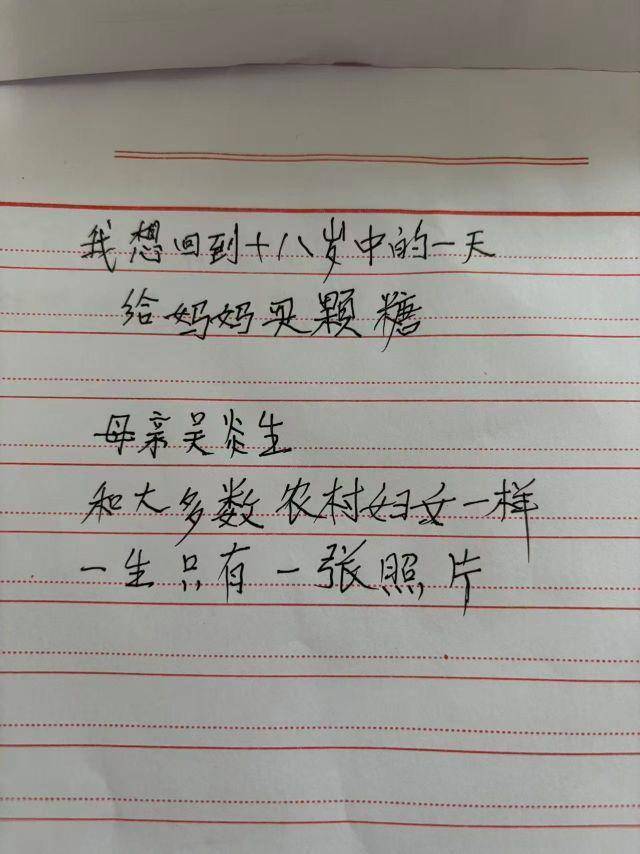 我想回到十八岁中的一天
给妈妈买颗糖
母亲吴炎生
和大多数农村妇女一样
一生只有一张照片